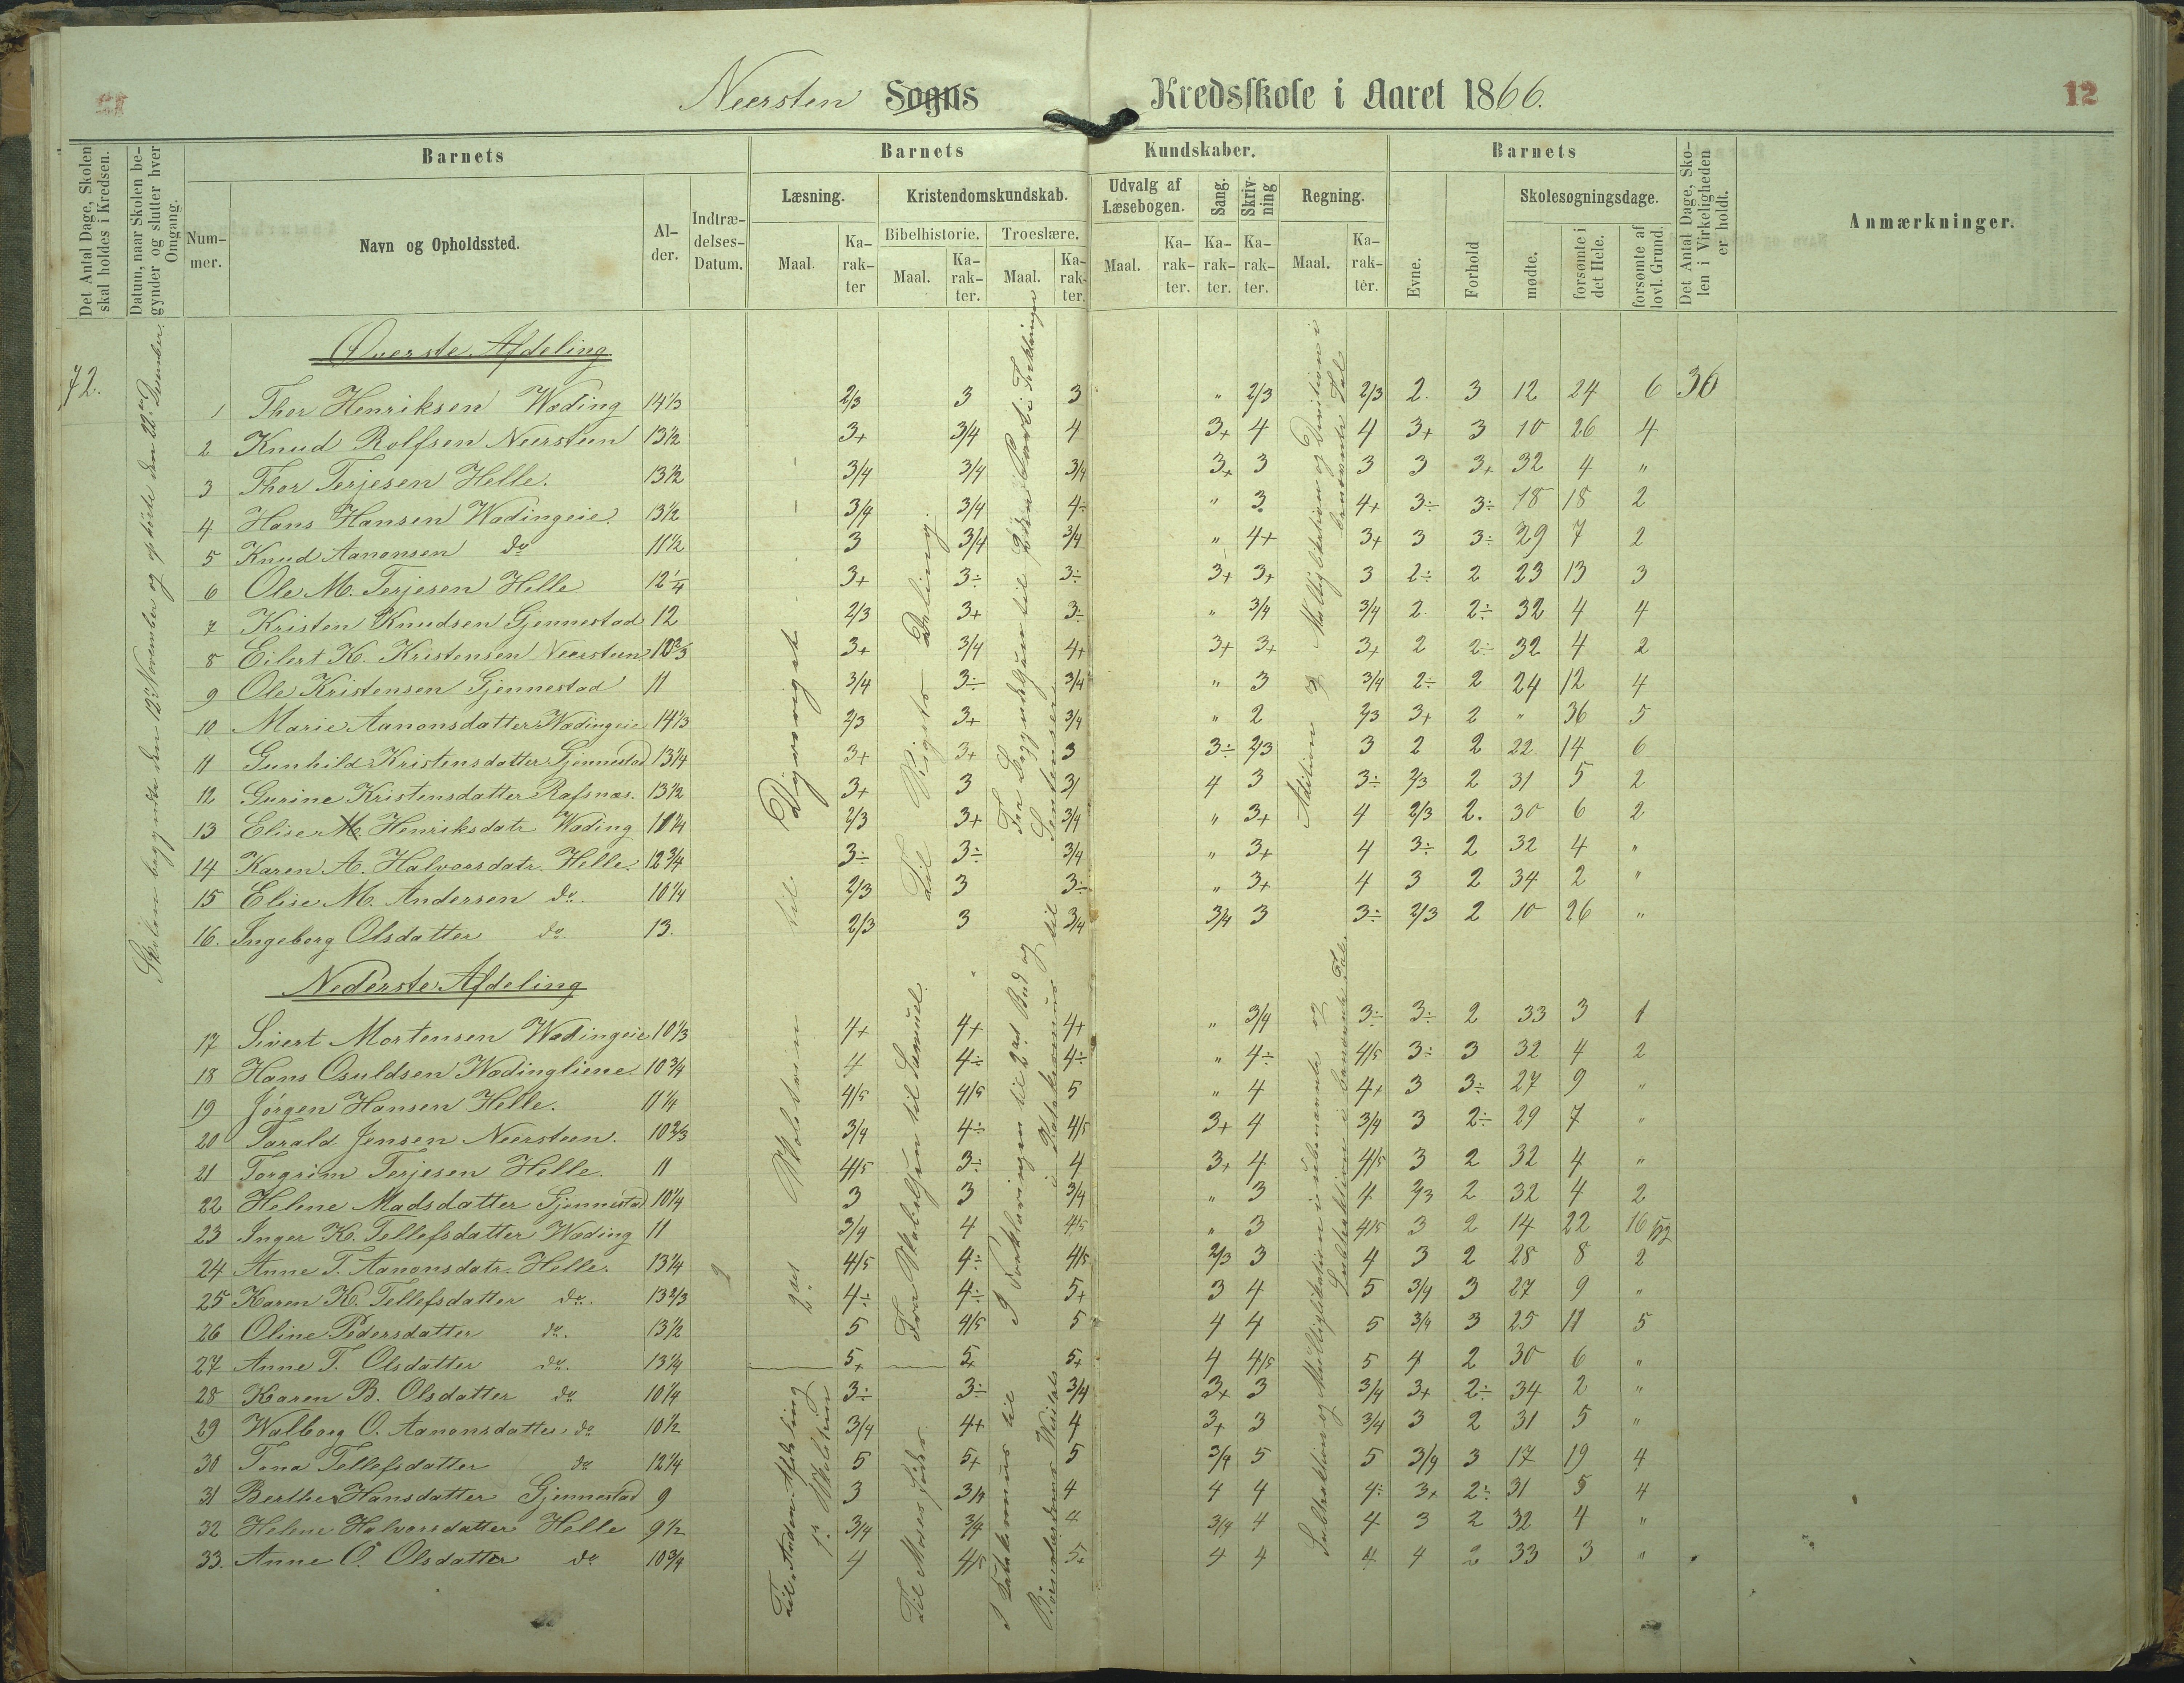 12
Neersten Sogns Kredsskole i Aaret 1866.
Det Antal Dage, Skolen skal holdes i Kredsen.
Datum, naar Skolen begynder og slutter hver Omgang.
Barnets
Nummer.
Navn og Opholdssted.
Alder.
Indtrædelses-Datum.
Barnets Kundskaber.
Læsning.
Maal.
Karakter
Kristendomskundskab.
Bibelhistorie.
Maal.
Karakter.
Troeslære.
Maal.
Karakter.
Udvalg af Læsebogen.
Maal.
Karakter.
Sang.
Karakter.
Skrivning
Karakter.
Regning.
Maal.
Karakter.
Barnets
Evne.
Forhold
Skolesøgningsdage.
mødte.
forsømte i det Hele.
forsømte af lovl. Grund.
Det Antal Dage, Skolen i Virkeligheden er holdt.
Anmærkninger.
72.
Skolen begyndte den 12te November og ophørte den 22de December.
Øverste Afdeling
1 Thor Henriksen Wæding 14 1/3 2/3 3 3 " 2/3 2/3 2. 3 12 24 6 36
2 Knud Rolfsen Neersteen 13 1/2 3+ 3/4 4 3+ 4 4 3+ 3 10 26 4
3 Thor Terjesen Helle. 13 1/2 3/4 3/4 3/4 3+ 3 3 3 3+ 32 4 "
4 Hans Hansen Wædingeie. 13 1/2 3/4 3/4 4÷ " 3 4+ 3÷ 3÷ 18 18 2
5 Knud Aanonsen do 11 1/2 3 3/4 3/4 " 4+ 3+ 3 3÷ 29 7 2
6 Ole M. Terjesen Helle 12 1/4 3+ 3÷ 3÷ 3+ 3+ 3 2÷ 2 23 13 3
7 Kristen Knudsen Gjennestad 12 2/3 3+ 3÷ " 3/4 3/4 2. 2÷ 32 4 4
8 Eilert K. Kristensen Neersteen 10 2/3 3+ 3/4 4+ 3+ 3+ 3+ 2 2÷ 32 4 2
9 Ole Kristensen Gjennestad 11 3/4 3÷ 3/4 " 3 3/4 2÷ 2 24 12 4
10 Marie Aanonsdatter Wædingeie 14 1/3 2/3 3+ 3/4 " 2 2/3 3+ 2 " 36 5
11 Gunhild Kristensdatter Gjennestad 13 1/4 3+ 3+ 3 3÷ 2/3 3 2 2 22 14 6
12 Gurine Kristensdatter Rafsnæs. 13 1/2 3+ 3 3/ 4 3 3÷ 2/3 2 31 5 2
13 Elise M. Henriksdatr Wæding 11 3/4 2/3 3+ 3/4 " 3+ 4 2/3 2. 30 6 2
14 Karen A. Halvorsdatr. Helle. 12 3/4 3÷ 3÷ 3/4 " 3+ 4 3÷ 2 32 4 "
15 Elise M. Andersen do. 10 1/4 2/3 3 3÷ " 3+ 4 3 2 34 2 "
16. Ingeborg Olsdatter do 13. 2/3 3 3/4 3/4 3 3÷ 2/3 2 10 26 "
til Dyreriget
Til Rigets Deling.
Fra Begyndelsen til 2den Part i Forklaringen til Sentenser
Adition og Multiplikation og Division i benævnte Tal
Nederste Afdeling
17 Sivert Mortensen Wædingeie 10 1/3 4+ 4+ 4+ " 3/4 3÷ 3÷ 2 33 3 1
18 Hans Osuldsen Wædingliene. 10 3/4 4 4÷ 4÷ " 4÷ 4/5 3÷ 3 32 4 2
19 Jørgen Hansen Helle. 11 1/4 4/5 4/5 5 " 4 4+ 3 3÷ 27 9 "
20 Tarald Jensen Neersteen. 10 2/3 3/4 4÷ 4/5 3+ 4 3/4 3 2÷ 29 7 "
21 Torgrim Terjesen Helle. 11 4/5 3÷ 4 3+ 4 4/5 3 2 32 4 "
22 Helene Madsdatter Gjennestad 10 1/4 3 3 3/4 " 3 4 2/3 2 32 4 2
23 Inger K. Tellefsdatter Wæding 11 3/4 4 4/5 " 3 4/5 3 2 14 22 16
24 Anne T. Aanonsdatr. Helle. 13 1/4 4/5 4÷ 4/5 2/3 3 4 3 2 28 8 2
25 Karen K. Tellefsdatter do. 13 2/3 4÷ 4÷ 5+ 3 4 5 3/4 3 27 9 "
26 Oline Pedersdatter do. 13 1/2 5 4/5 5 4 4 5 3/4 3 25 11 5
27 Anne T. Olsdatter do. 13 1/4 5+ 5+ 5+ 4 4/5 5 4 2 30 6 "
28 Karen B. Olsdatter do 10 1/4 3÷ 3÷ 3/4 3+ 3 3/4 3+ 2÷ 34 2 "
29 Walborg O. Aanonsdatter do 10 1/2 3/4 4+ 4 3+ 3 3/4 3 2 31 5 "
30 Tona Tellefsdatter do 12 1/4 5 5+ 5 3/4 5 5 3/4 3 17 19 4
31 Berthe Hansdatter Gjennestad 9 3 3/4 4 4 4 4÷ 3+ 2÷ 31 5 4
32 Helene Halvorsdatter Helle 9 1/2 3/4 3/4 4 3/4 4 4 3 2 32 4 "
33. Anne O. Olsdatter do 10 3/4 4 4/5 5+ 4 4 4 4 2 33 3 "
2det Skoletrin
Fra til Samuel.
I Forklaringen til 2det Bud og til i Katekismus
Subtraktion og Multiplikation i ubenævnte og Subtraktion i benævnte Tal
Til Anden Afdeling 1ste Skoletrin
Til Moses Føds
I Katekismus til